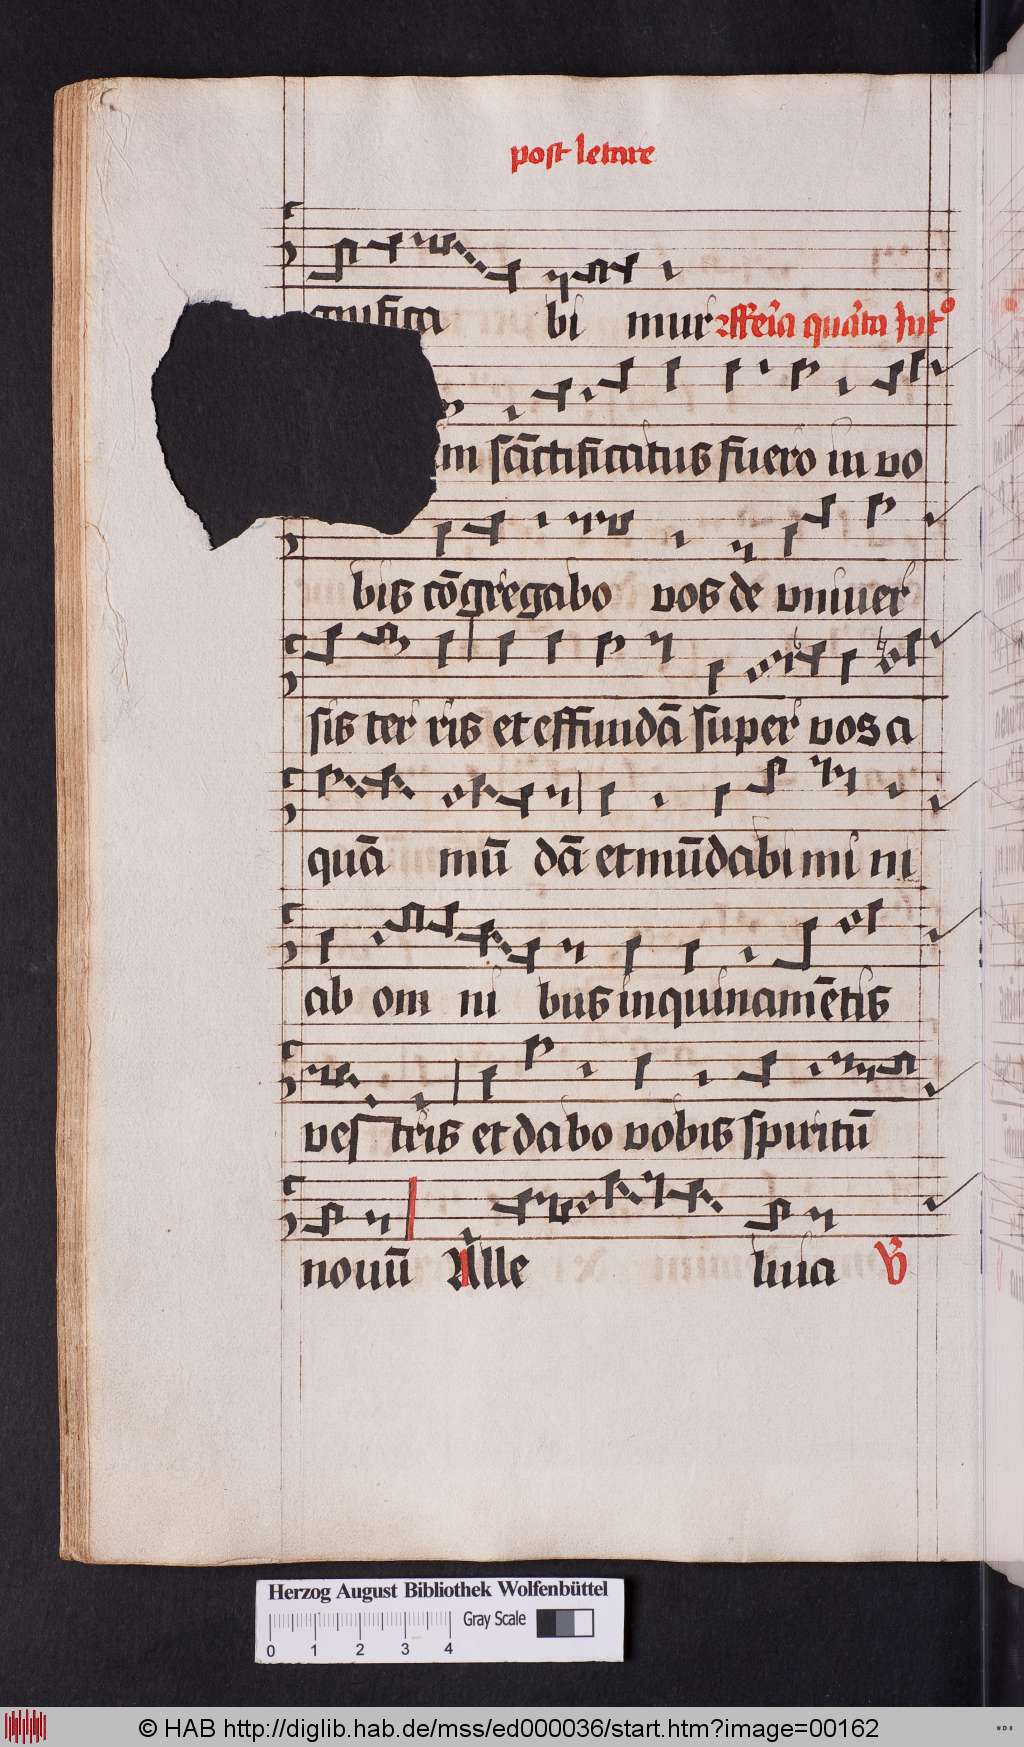 post letare
gnifica bi mur ffeīa quāta Int°
m sāctificatus fuero in vo
bis cōgregabo vos de vniuer
sis ter ris et effundā super vos a
quā mū dā et mūdabi mi ni
ab om ni bus inquinamētis
ves tris et dabo vobis spiritū
nouū Alle luia
Herzog August Bibliothek Wolfenbüttel
Gray Scale
0 1 2 3 4
© HAB http://diglib.hab.de/mss/ed000036/start.htm?image=00162